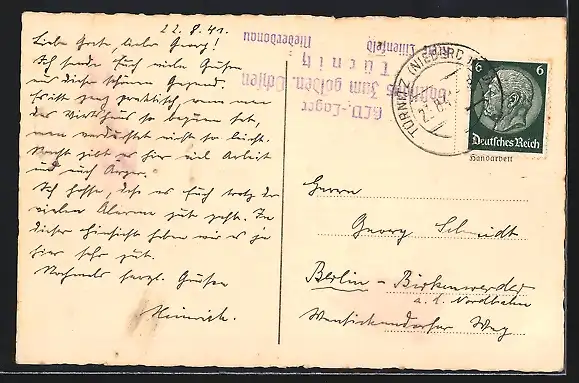 22.8.41.
Liebe Grete, lieber Georg!
Ich sende Euch viele Grüße
aus dieser schönen Gegend.
Es ist ganz praktisch, wenn man
das Wirtshaus so bequem hat,
man verdurstet nicht so leicht.
Sonst gibt es hier viel Arbeit
und auch Ärger.
Ich hoffe, dass es Euch trotz der
vielen Alarme gut geht. In
dieser Hinsicht haben wir es ja
hier sehr gut.
Nochmals herzl. Grüße
Heinrich.
KLV.-Lager
Gasthaus zum gold'nen Ochsen
Türnitz
Bezirk Lilienfeld
Niederdonau
TÜRNITZ (NIEDERDONAU)
6 6
Deutsches Reich
Handarbeit
Herrn
Georg Schmidt
Berlin - Birkenwerder
a. d. Nordbahn
Wensickendorfer Weg